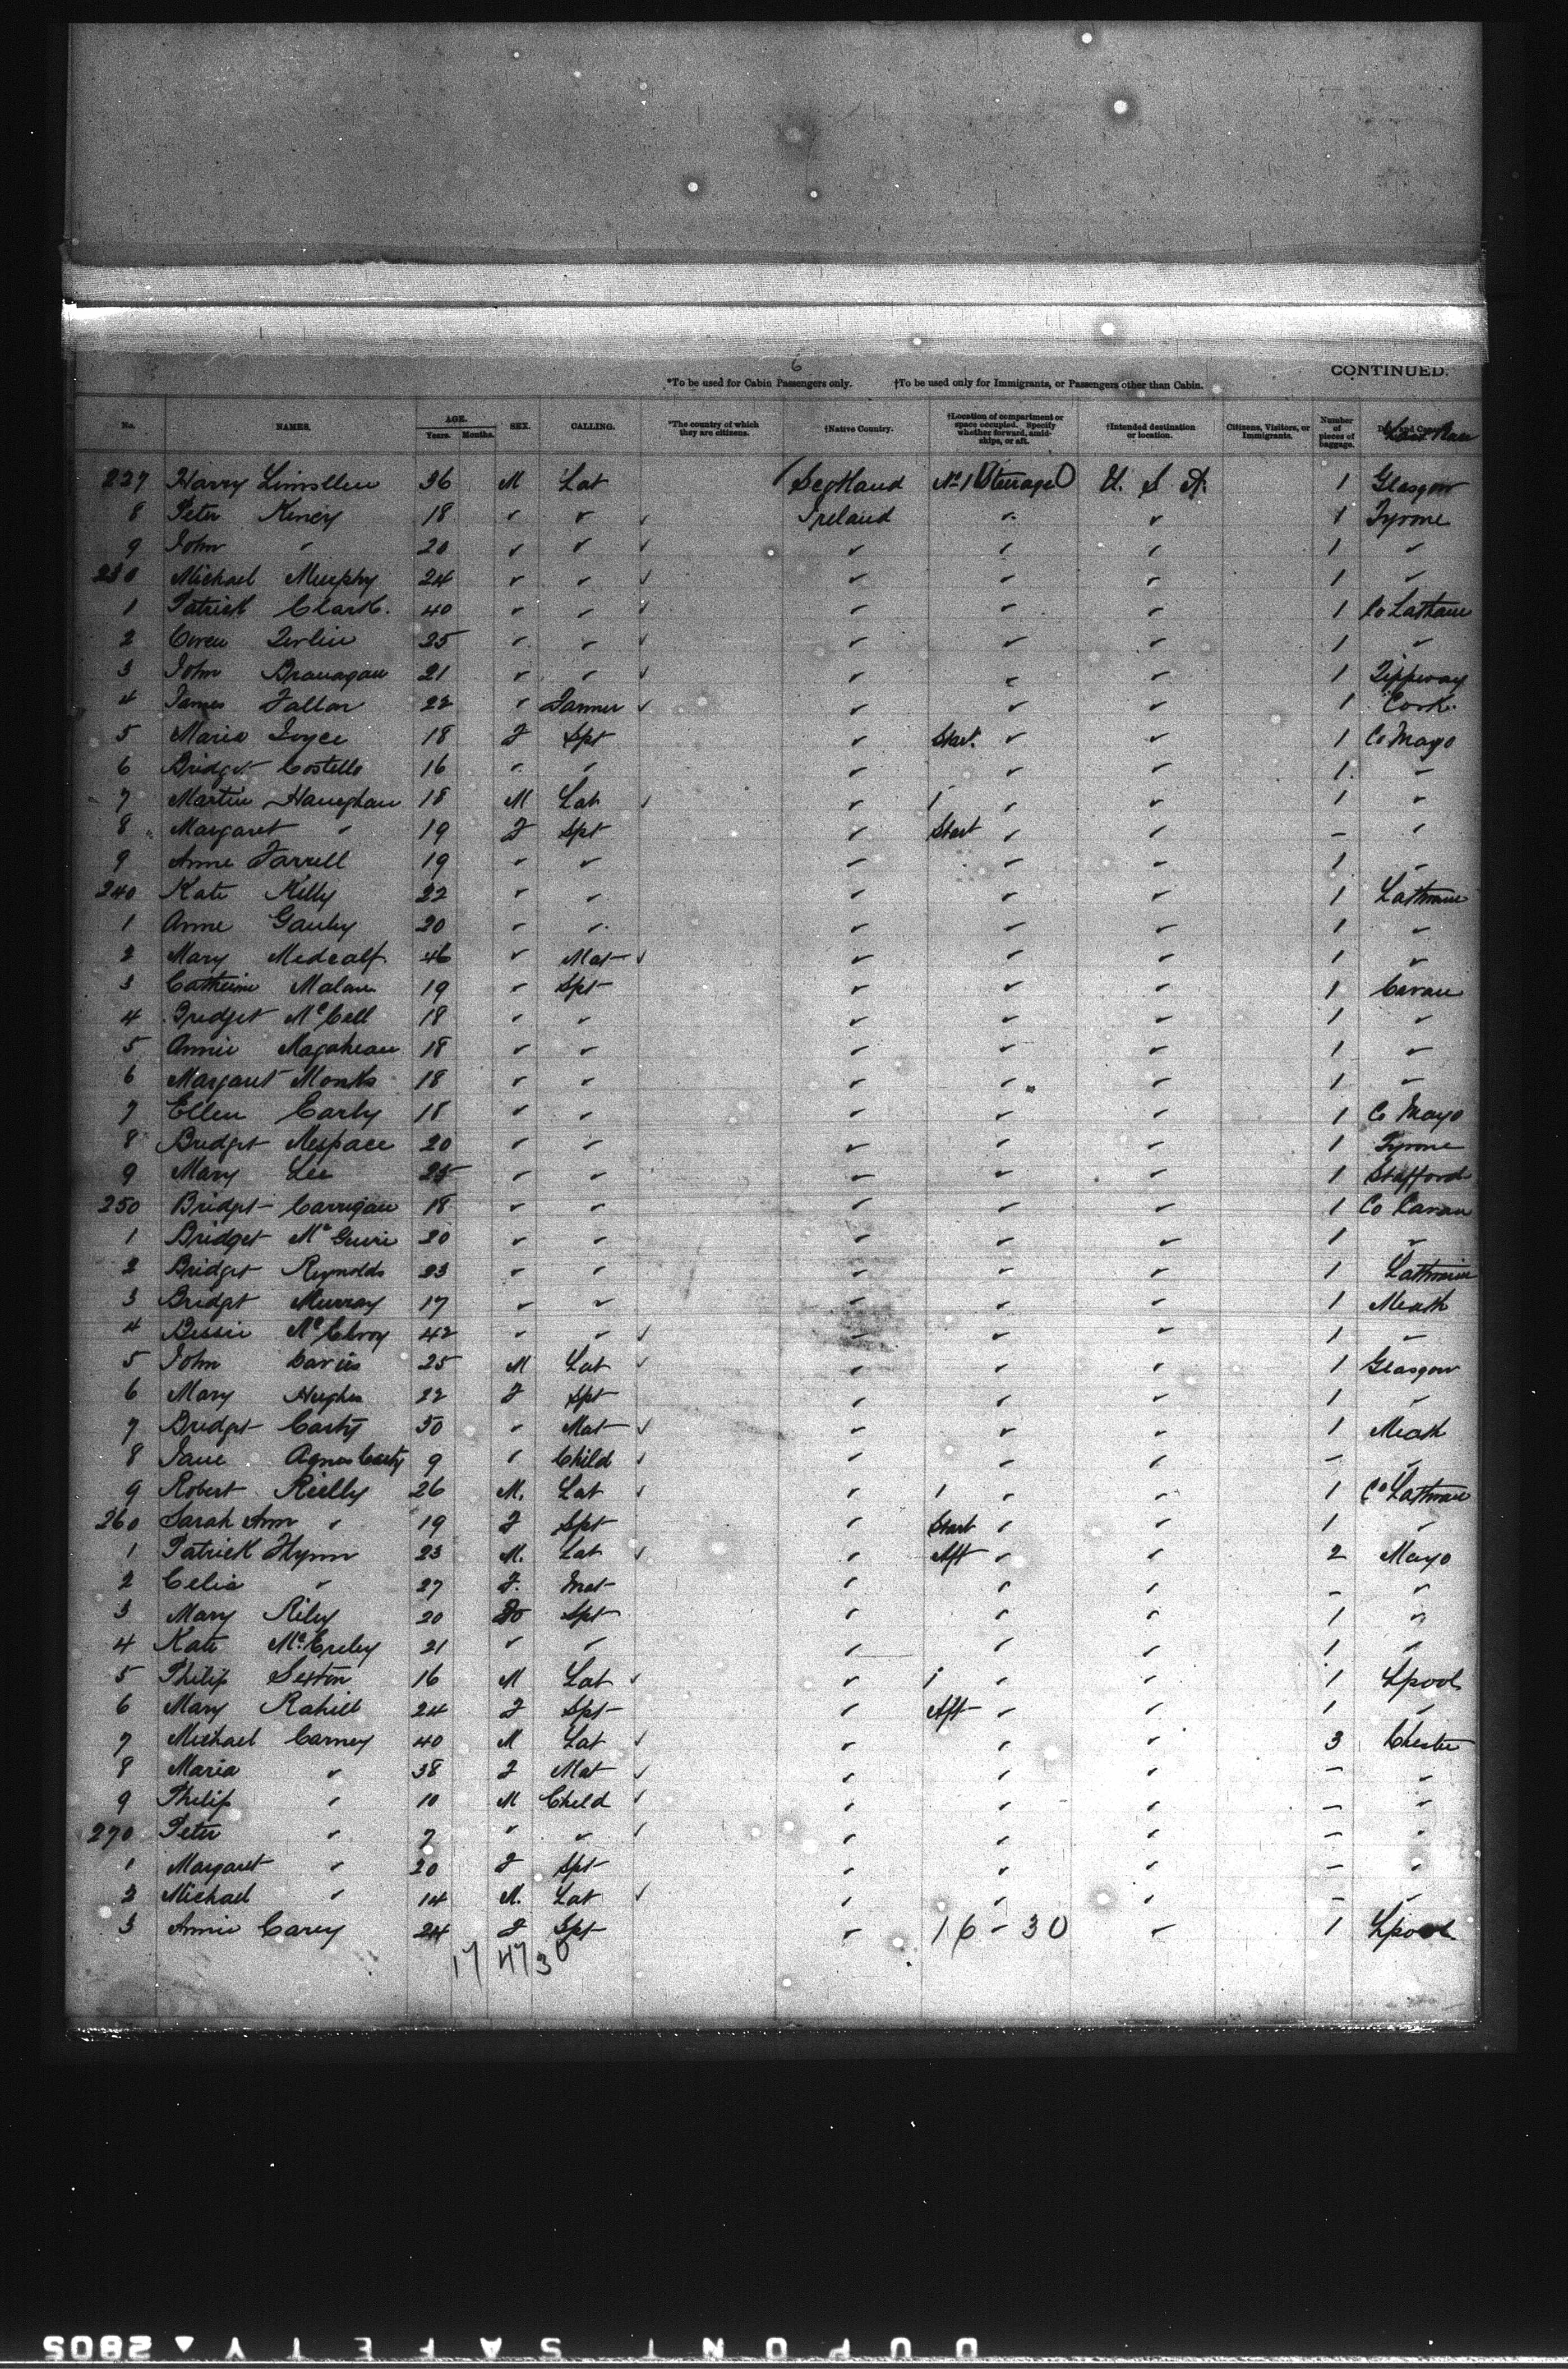 6
CONTINUED.
*To be used for Cabin Passengers only. †To be used only for Immigrants, or Passengers other than Cabin.
No. NAMES. AGE. Years. Months. SEX. CALLING. *The country of which they are citizens. †Native Country. †Location of compartment or space occupied. Specify whether forward, amidships, or aft. †Intended destination or location. Citizens, Visitors, or Immigrants. Number of pieces of baggage.
227 Harry 36 M Lab Scotland No 1 Steerage U. S. A. 1 Glasgow
8 Peter Kiney 18 " " Ireland " " 1 Tyrone
9 John " 20 " " " " " 1 "
230 Michael Murphy 24 " " " " " 1 "
1 Patrick Clark. 40 " " " " " 1 Co
2 Owen 25 " " " " " 1 "
3 John Branagan 21 " " " " " 1
4 James Fallon 22 " Farmer " " " 1 Cork.
5 Maria Joyce 18 F Spt " " " 1 Co Mayo
6 Bridget Costello 16 " " " " " 1 "
7 Martin Haughan 18 M Lab " 1 " " 1 "
8 Margaret " 19 F Spt " " " – "
9 Anne Farrell 19 " " " " " 1 "
240 Kate Kelly 22 " " " " " 1
1 Anne Gauley 20 " " " " " 1 "
2 Mary Medcalf 46 " Mat " " " 1 "
3 Catherine Malone 19 " Spt " " " 1 Cavan
4 Bridget McCall 18 " " " " " 1 "
5 Annie 18 " " " " " 1 "
6 Margaret Monks 18 " " " " " 1 "
7 Ellen Early 18 " " " " " 1 Co Mayo
8 Bridget 20 " " " " " 1 Tyrone
9 Mary Lee 25 " " " " " 1 Stafford
250 Bridget Carrigan 18 " " " " " 1 Co Cavan
1 Bridget McGuire 20 " " " " " 1 "
2 Bridget Reynolds 23 " " " " " 1
3 Bridget Murray 17 " " " " " 1 Meath
4 Bessie McElroy 42 " " " " " 1 "
5 John Davies 25 M Lab " " " 1 Glasgow
6 Mary Hughes 22 F Spt " " " 1 "
7 Bridget Carty 50 " Mat " " " 1 Meath
8 Jane Agnes Carty 9 " Child " " " – "
9 Robert Rielly 26 M. Lab " 1 " " 1 Co
260 Sarah Ann " 19 F Spt " " " 1 "
1 Patrick Flynn 23 M. Lab " Aft " " 2 Mayo
2 Celia " 27 F. Mat " " " – "
3 Mary Riley 20 Do Spt " " " 1 "
4 Kate 21 " " " " " 1 "
5 Philip Sexton 16 M Lab " 1 " " 1 Lpool
6 Mary Rahill 24 F Spt " Aft " " 1 "
7 Michael Carney 40 M Lab " " " 3 Chester
8 Maria " 38 F Mat " " " – "
9 Philip " 10 M Child " " " – "
270 Peter " 7 " " " " " – "
1 Margaret " 20 F Spt " " " – "
2 Michael " 14 M. Lab " " " – "
3 Annie Carey 24 F Spt " 16 – 30 " 1 Lpool
17 47 30
DUPONT SAFETY ▲ 2805